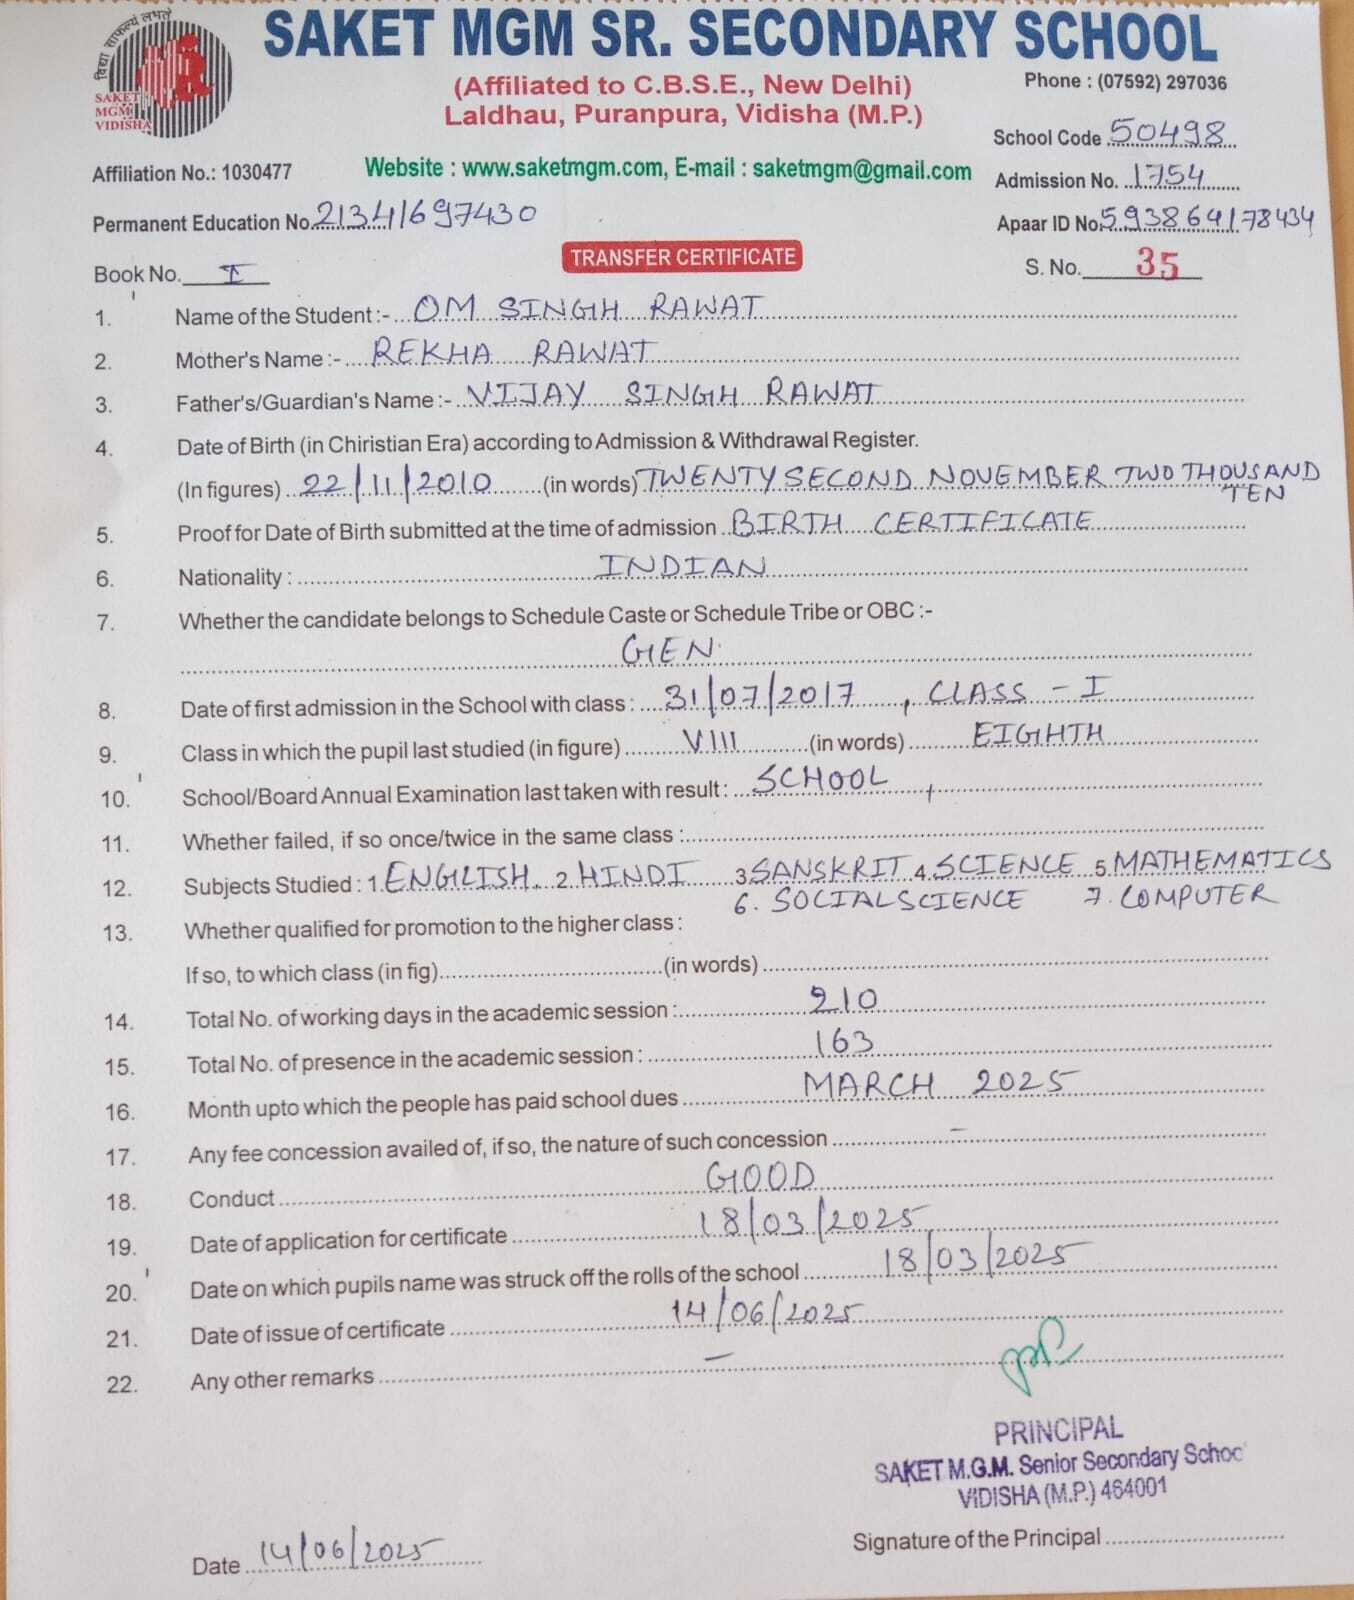 विद्या साफल्यं लभते
SAKET
MGM
VIDISHA
SAKET MGM SR. SECONDARY SCHOOL
(Affiliated to C.B.S.E., New Delhi)
Phone : (07592) 297036
Laldhau, Puranpura, Vidisha (M.P.)
School Code 50498
Affiliation No.: 1030477
Website : www.saketmgm.com, E-mail : saketmgm@gmail.com
Admission No. 1754
Permanent Education No. 21341697430
Apaar ID No. 593864178434
Book No. I
TRANSFER CERTIFICATE
S. No. 35
1. Name of the Student :- OM SINGH RAWAT
2. Mother's Name :- REKHA RAWAT
3. Father's/Guardian's Name :- VIJAY SINGH RAWAT
4. Date of Birth (in Chiristian Era) according to Admission & Withdrawal Register.
(In figures) 22/11/2010 (in words) TWENTY SECOND NOVEMBER TWO THOUSAND
TEN
5. Proof for Date of Birth submitted at the time of admission BIRTH CERTIFICATE
6. Nationality : INDIAN
7. Whether the candidate belongs to Schedule Caste or Schedule Tribe or OBC :-
GEN
8. Date of first admission in the School with class : 31/07/2017 , CLASS - I
9. Class in which the pupil last studied (in figure) VIII (in words) EIGHTH
10. School/Board Annual Examination last taken with result : SCHOOL ,
11. Whether failed, if so once/twice in the same class :
12. Subjects Studied : 1. ENGLISH 2. HINDI 3. SANSKRIT 4. SCIENCE 5. MATHEMATICS
6. SOCIAL SCIENCE 7. COMPUTER
13. Whether qualified for promotion to the higher class :
If so, to which class (in fig) (in words)
14. Total No. of working days in the academic session : 210
15. Total No. of presence in the academic session : 163
16. Month upto which the people has paid school dues MARCH 2025
17. Any fee concession availed of, if so, the nature of such concession –
18. Conduct GOOD
19. Date of application for certificate 18/03/2025
20. Date on which pupils name was struck off the rolls of the school 18/03/2025
21. Date of issue of certificate 14/06/2025
22. Any other remarks –
PRINCIPAL
SAKET M.G.M. Senior Secondary School
VIDISHA (M.P.) 464001
Signature of the Principal
Date 14/06/2025